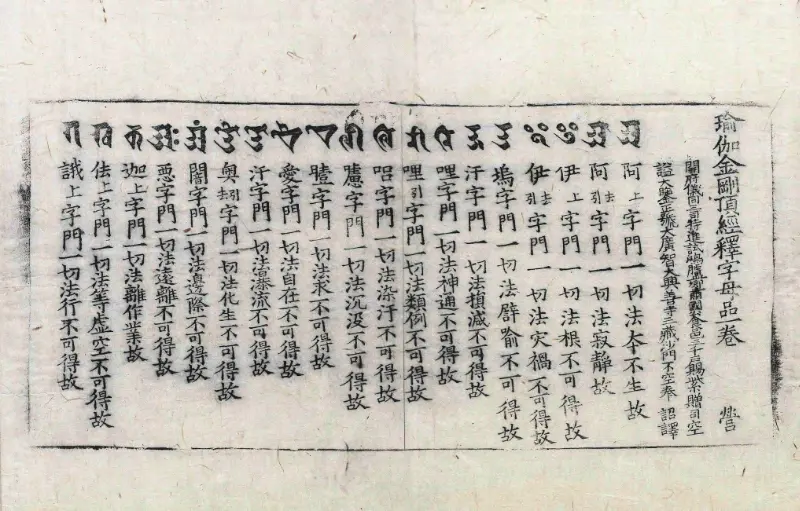 瑜伽金剛頂經釋字母品一卷 營
開府儀同三司特進試鴻臚卿肅國公食邑三千戶賜紫贈司空
謚大鑒正號大廣智大興善寺三藏沙門不空奉 詔譯
𑖀 阿上字門一切法夲不生故
𑖁 阿去引字門一切法寂靜故
𑖂 伊上字門一切法根不可得故
𑖃 伊去引字門一切法灾禍不可得故
𑖄 塢字門一切法譬喻不可得故
𑖅 汙字門一切法損減不可得故
𑖆 哩字門一切法神通不可得故
𑖇 哩引字門一切法類例不可得故
𑖈 呂字門一切法染汙不可得故
𑖉 嚧字門一切法沉沒不可得故
𑖊 曀字門一切法求不可得故
𑖋 愛字門一切法自在不可得故
𑖌 汙字門一切法瀑流不可得故
𑖍 奧去引字門一切法化生不可得故
𑖀𑖽 闇字門一切法邊際不可得故
𑖀𑖾 惡字門一切法遠離不可得故
𑖎 迦上字門一切法離作業故
𑖏 佉上字門一切法等虛空不可得故
𑖐 誐上字門一切法行不可得故